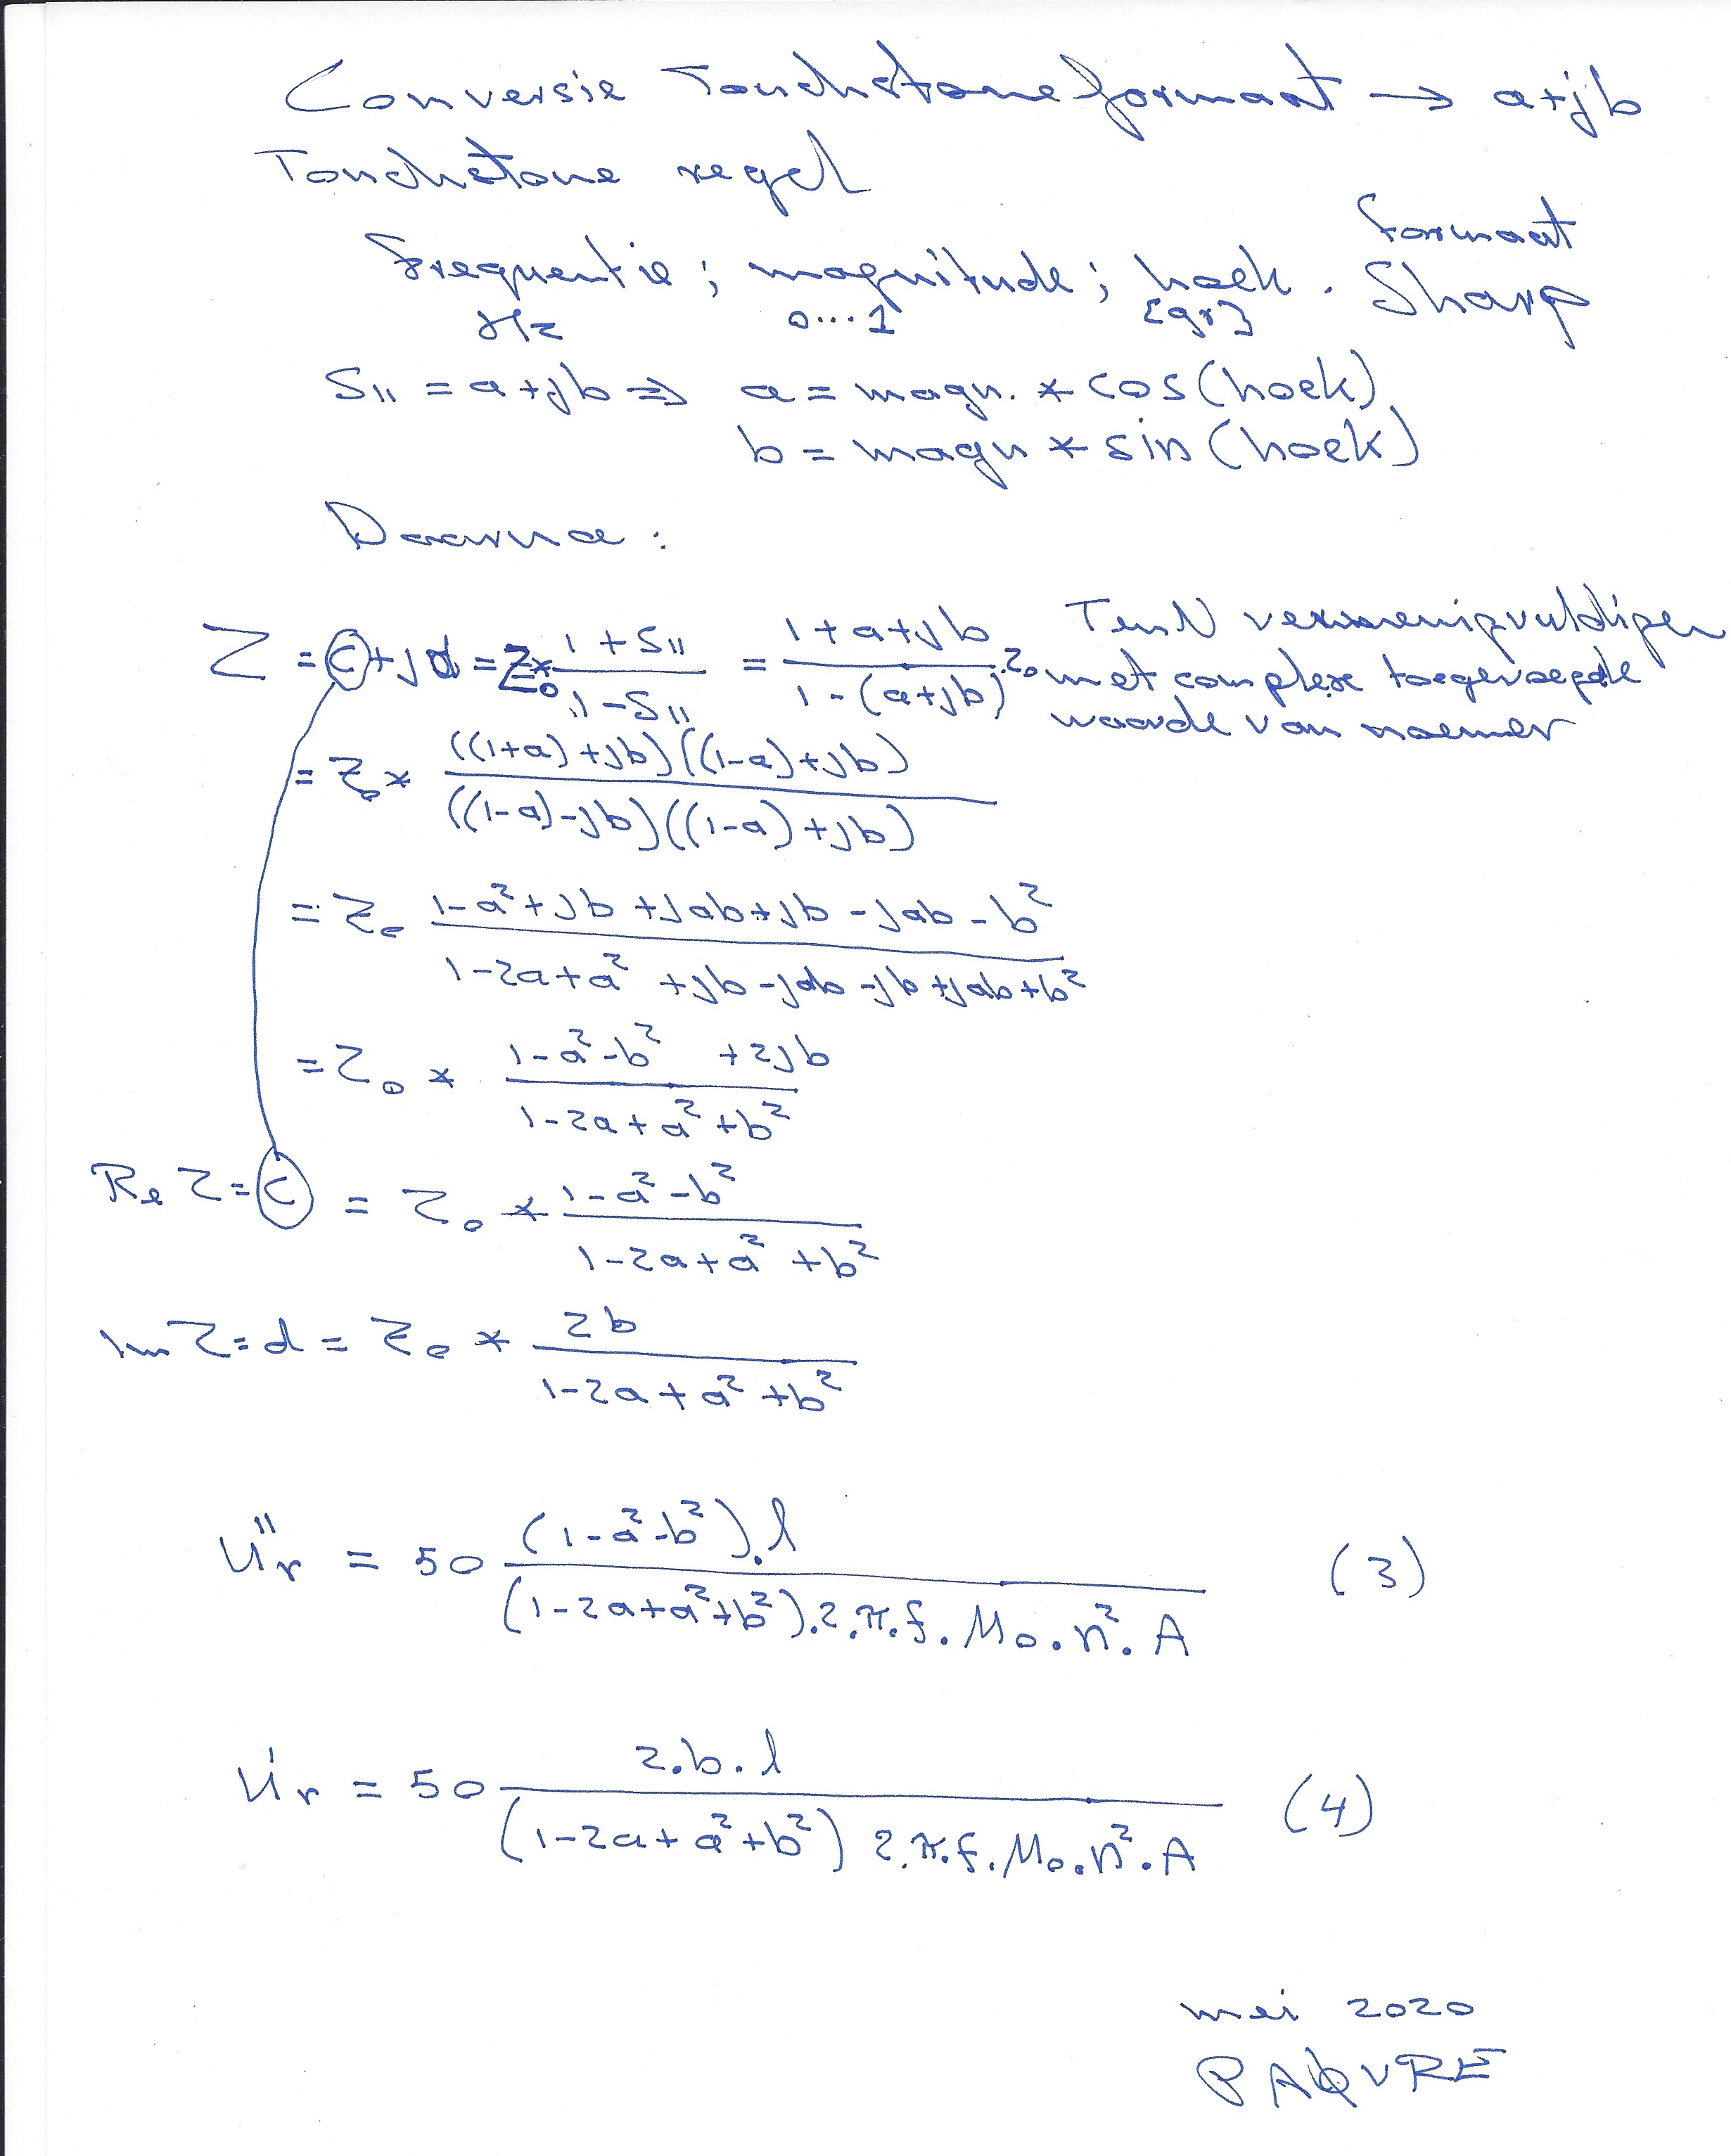 Conversie Touchstone formaat → a+jb
Touchstone regel
frequentie ; magnitude ; hoek . formaat Sharp
Hz 0...1 [gr]
S11 = a+jb ⇒ a = magn. * cos(hoek)
b = magn * sin(hoek)
Daarna :
Z = c+jd = Z0* (1+S11)/(1-S11) = (1+a+jb)/(1-(a+jb)) .Z0
T en N vermenigvuldigen
met complex toegevoegde
waarde van noemer
= Z0 * ((1+a)+jb)((1-a)+jb) / ((1-a)-jb)((1-a)+jb)
= Z0 (1-a²+jb+jab+jb-jab-b²) / (1-2a+a²+jb-jab-jb+jab+b²)
= Z0 * (1-a²-b² +2jb) / (1-2a+a²+b²)
Re Z = c = Z0 * (1-a²-b²) / (1-2a+a²+b²)
Im Z = d = Z0 * 2b / (1-2a+a²+b²)
μ"r = 50 (1-a²-b²).l / (1-2a+a²+b²).2.π.f.μ0.n².A (3)
μ'r = 50 2.b.l / (1-2a+a²+b²) 2.π.f.μ0.n².A (4)
mei 2020
PA0VRE